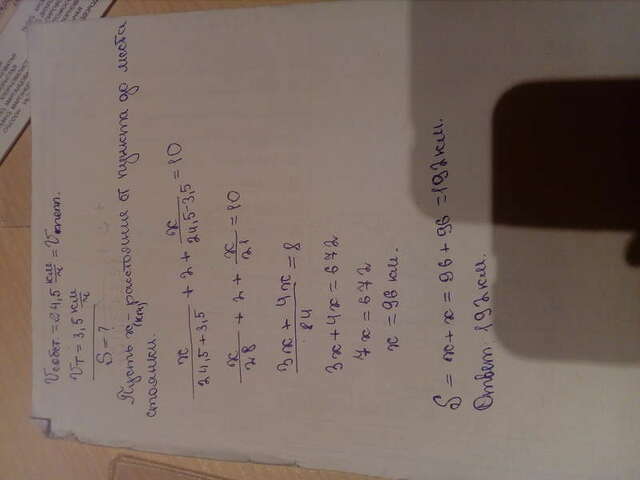 Vсобст = 24,5 км/ч = Vтепл.
Vт = 3,5 км/ч
S = ?
Пусть x (км) расстояние от пункта до места
стоянки.
x/(24,5+3,5) + 2 + x/(24,5-3,5) = 10
x/28 + 2 + x/21 = 10
(3x + 4x)/84 = 8
3x + 4x = 672
7x = 672
x = 96 км.
S = x + x = 96 + 96 = 192 км.
Ответ: 192 км.